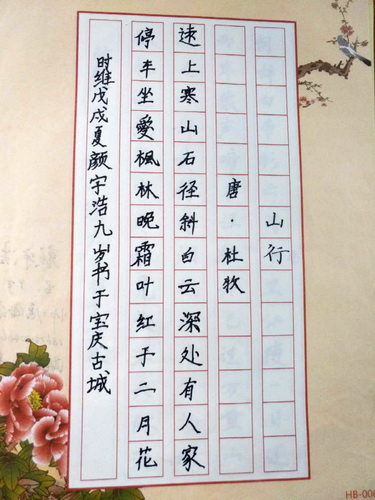 山行
唐·杜牧
遠上寒山石径斜白云深处有人家
停车坐愛楓林晚霜叶红于二月花
时维戊戌夏颜宇浩九岁书于宝庆古城
HB-006